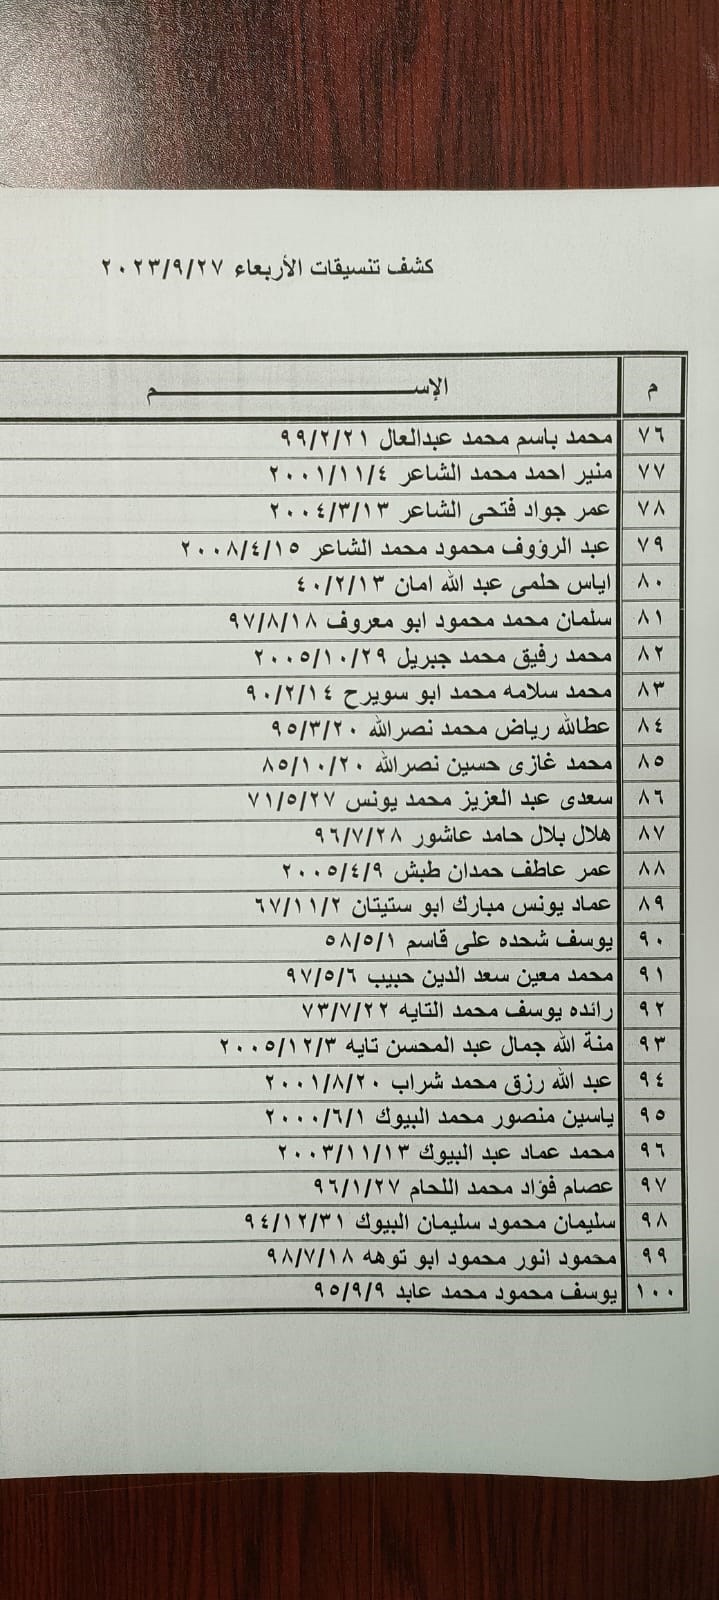 كشف تنسيقات الأربعاء ٢٠٢٣/٩/٢٧
م الإســـــــــــــــــــم
٧٦ محمد باسم محمد عبدالعال ٩٩/٢/٢١
٧٧ منير احمد محمد الشاعر ٢٠٠١/١١/٤
٧٨ عمر جواد فتحى الشاعر ٢٠٠٤/٣/١٣
٧٩ عبد الرؤوف محمود محمد الشاعر ٢٠٠٨/٤/١٥
٨٠ اياس حلمى عبد الله امان ٤٠/٢/١٣
٨١ سلمان محمد محمود ابو معروف ٩٧/٨/١٨
٨٢ محمد رفيق محمد جبريل ٢٠٠٥/١٠/٢٩
٨٣ محمد سلامه محمد ابو سويرح ٩٠/٢/١٤
٨٤ عطالله رياض محمد نصرالله ٩٥/٣/٢٠
٨٥ محمد غازى حسين نصرالله ٨٥/١٠/٢٠
٨٦ سعدى عبد العزيز محمد يونس ٧١/٥/٢٧
٨٧ هلال بلال حامد عاشور ٩٦/٧/٢٨
٨٨ عمر عاطف حمدان طبش ٢٠٠٥/٤/٩
٨٩ عماد يونس مبارك ابو ستيتان ٦٧/١١/٢
٩٠ يوسف شحده على قاسم ٥٨/٥/١
٩١ محمد معين سعد الدين حبيب ٩٧/٥/٦
٩٢ رائده يوسف محمد التايه ٧٣/٧/٢٢
٩٣ منة الله جمال عبد المحسن تايه ٢٠٠٥/١٢/٣
٩٤ عبد الله رزق محمد شراب ٢٠٠١/٨/٢٠
٩٥ ياسين منصور محمد البيوك ٢٠٠٠/٦/١
٩٦ محمد عماد عبد البيوك ٢٠٠٣/١١/١٣
٩٧ عصام فؤاد محمد اللحام ٩٦/١/٢٧
٩٨ سليمان محمود سليمان البيوك ٩٤/١٢/٣١
٩٩ محمود انور محمود ابو توهه ٩٨/٧/١٨
١٠٠ يوسف محمود محمد عابد ٩٥/٩/٩